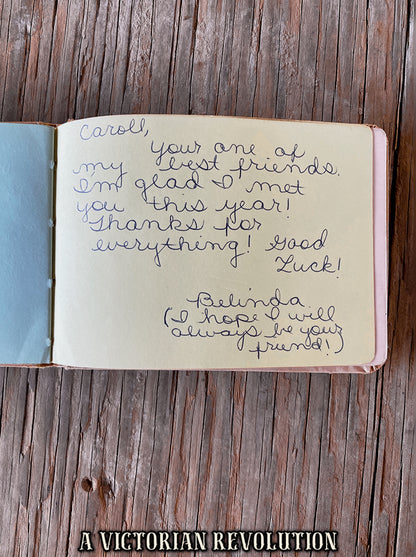 Caroll,
your one of
my best friends.
I'm glad I met
you this year!
Thanks for
everything! Good
Luck!
Belinda
(I hope I will
always be your
friend!)
A VICTORIAN REVOLUTION